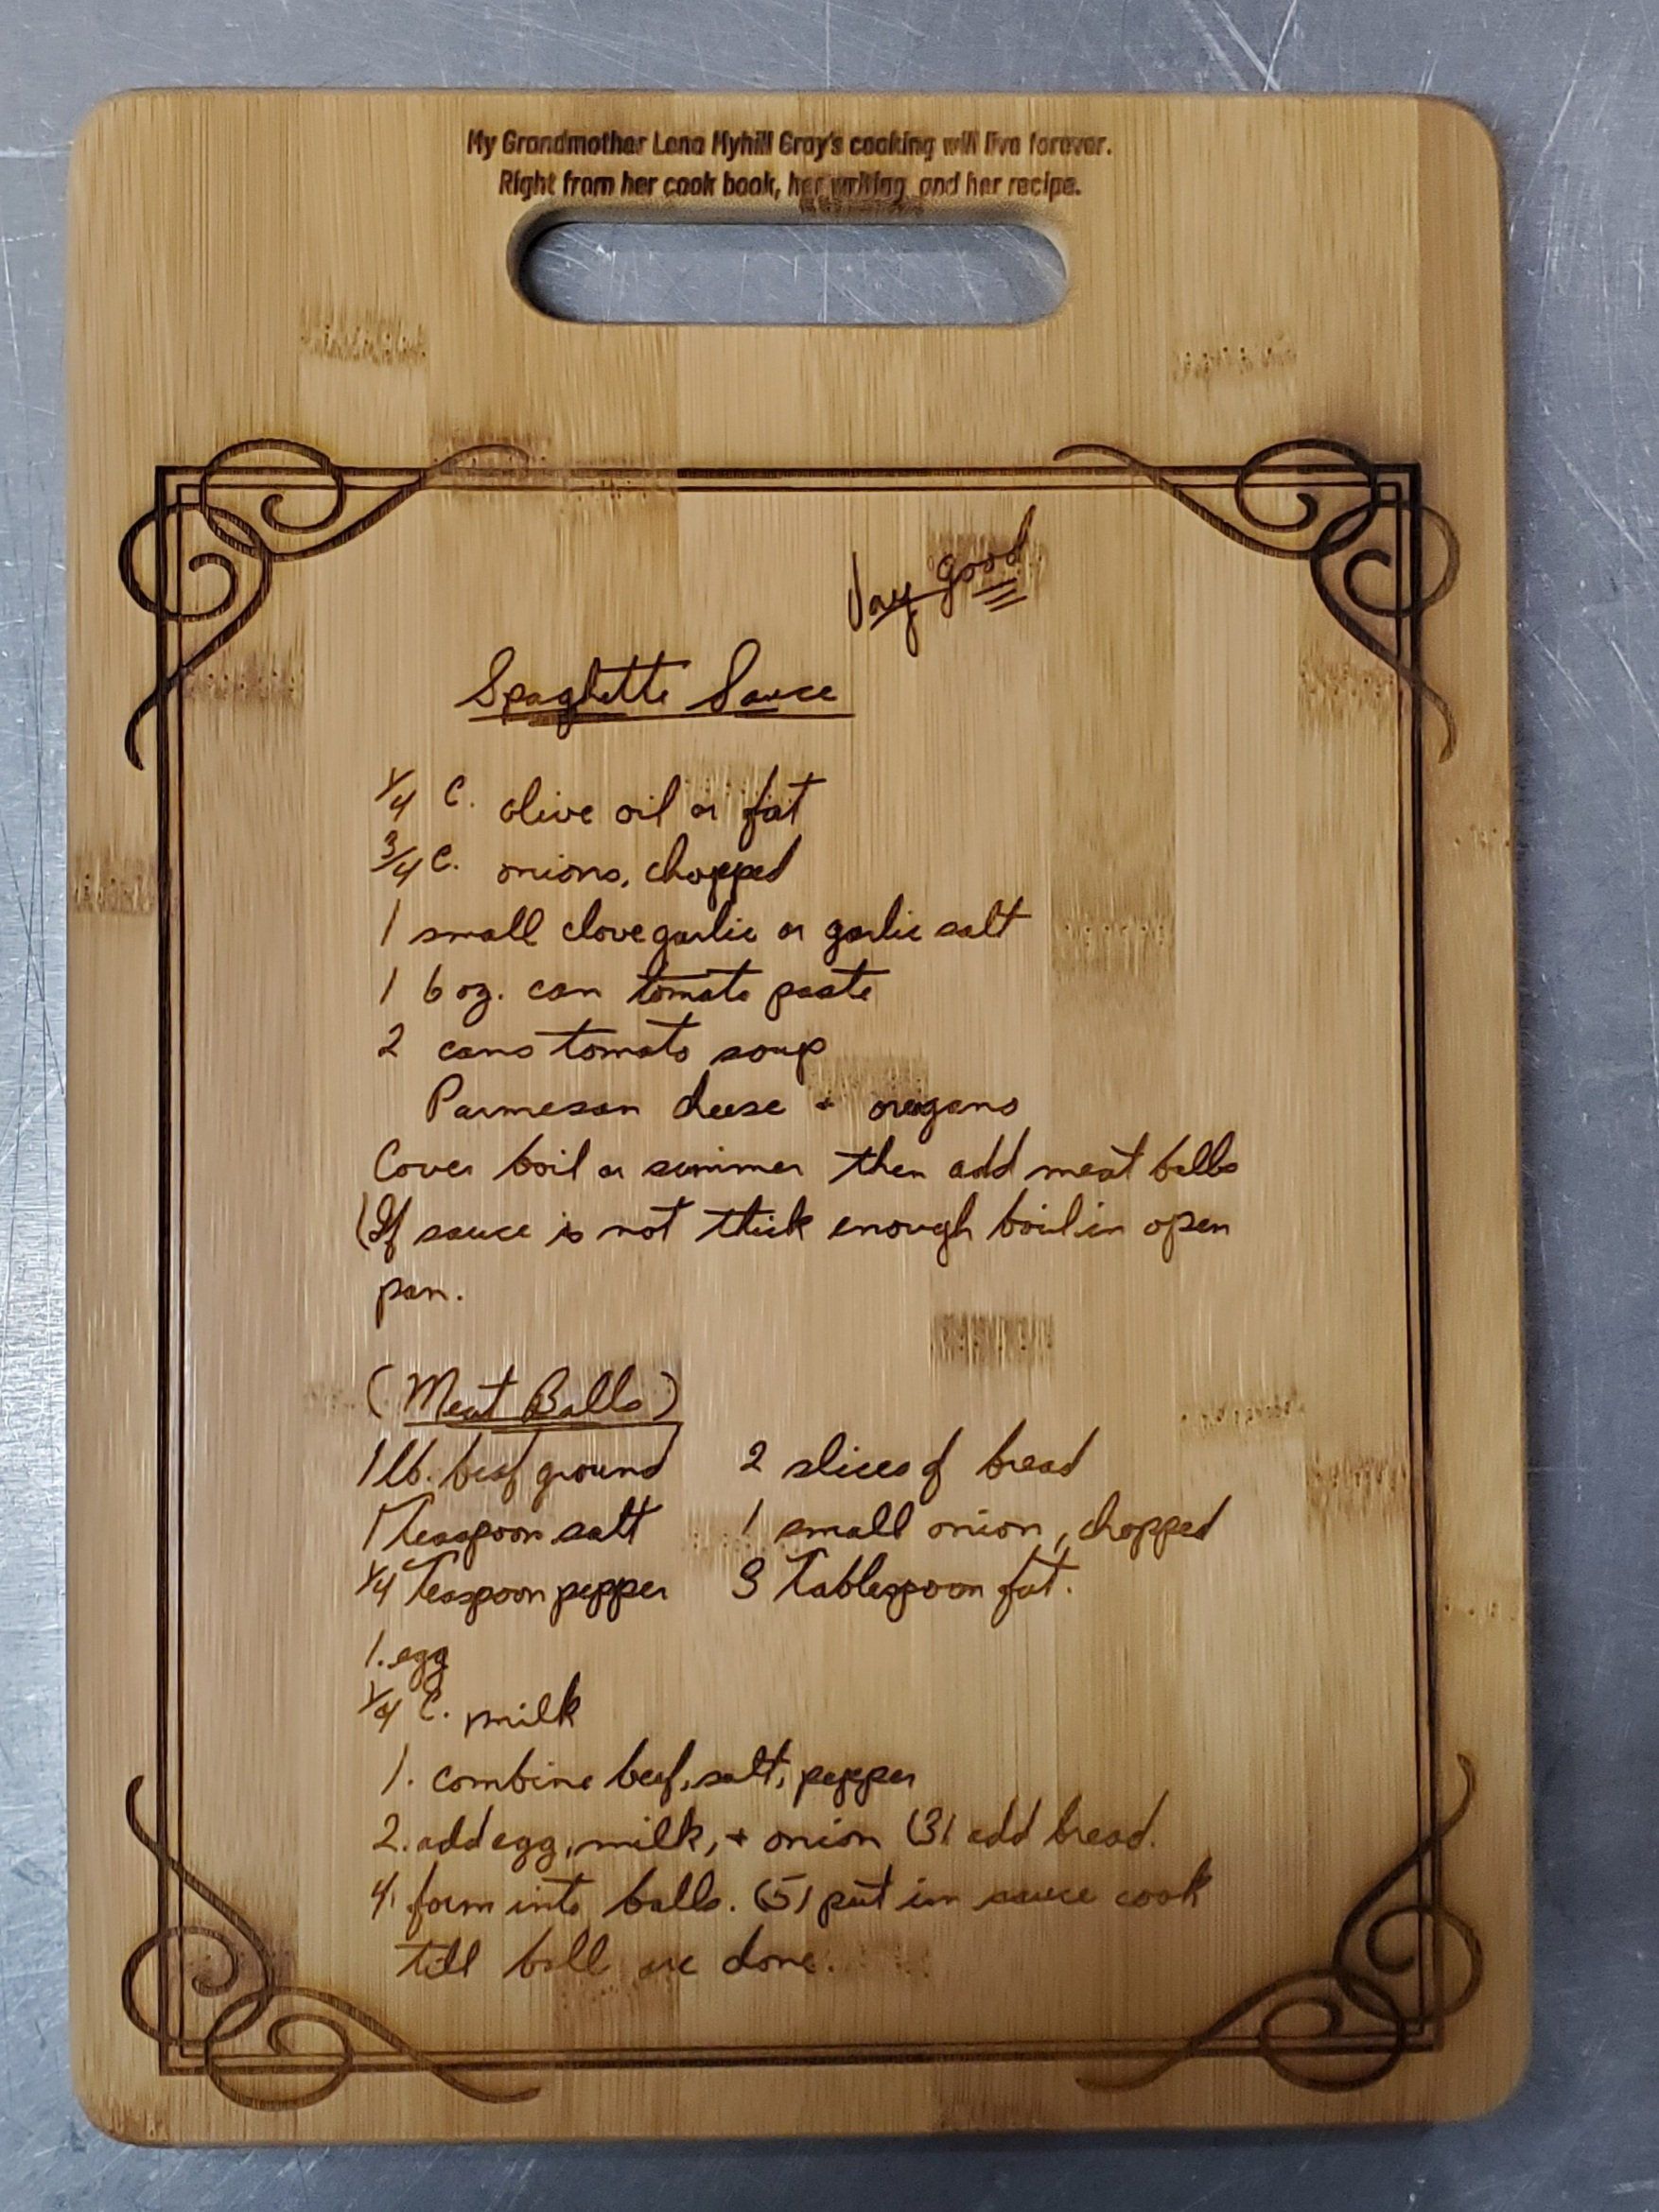 My Grandmother Lena Myhill Gray's cooking will live forever.
Right from her cook book, her writing, and her recipe.
Very good
Spaghetti Sauce
1/4 C. olive oil or fat
3/4 C. onions, chopped
1 small clove garlic or garlic salt
1 6 oz. can tomato paste
2 cans tomato soup
Parmesan cheese + oregano
Cover boil or simmer then add meat balls
(If sauce is not thick enough boil in open
pan.
(Meat Balls)
1 lb. beef ground 2 slices of bread
1 Teaspoon salt 1 small onion, chopped
1/4 Teaspoon pepper 3 Tablespoon fat.
1. egg
1/4 C. milk
1. combine beef, salt, pepper
2. add egg, milk, + onion (3) add bread.
4. form into balls. (5) put in sauce cook
till ball are done.